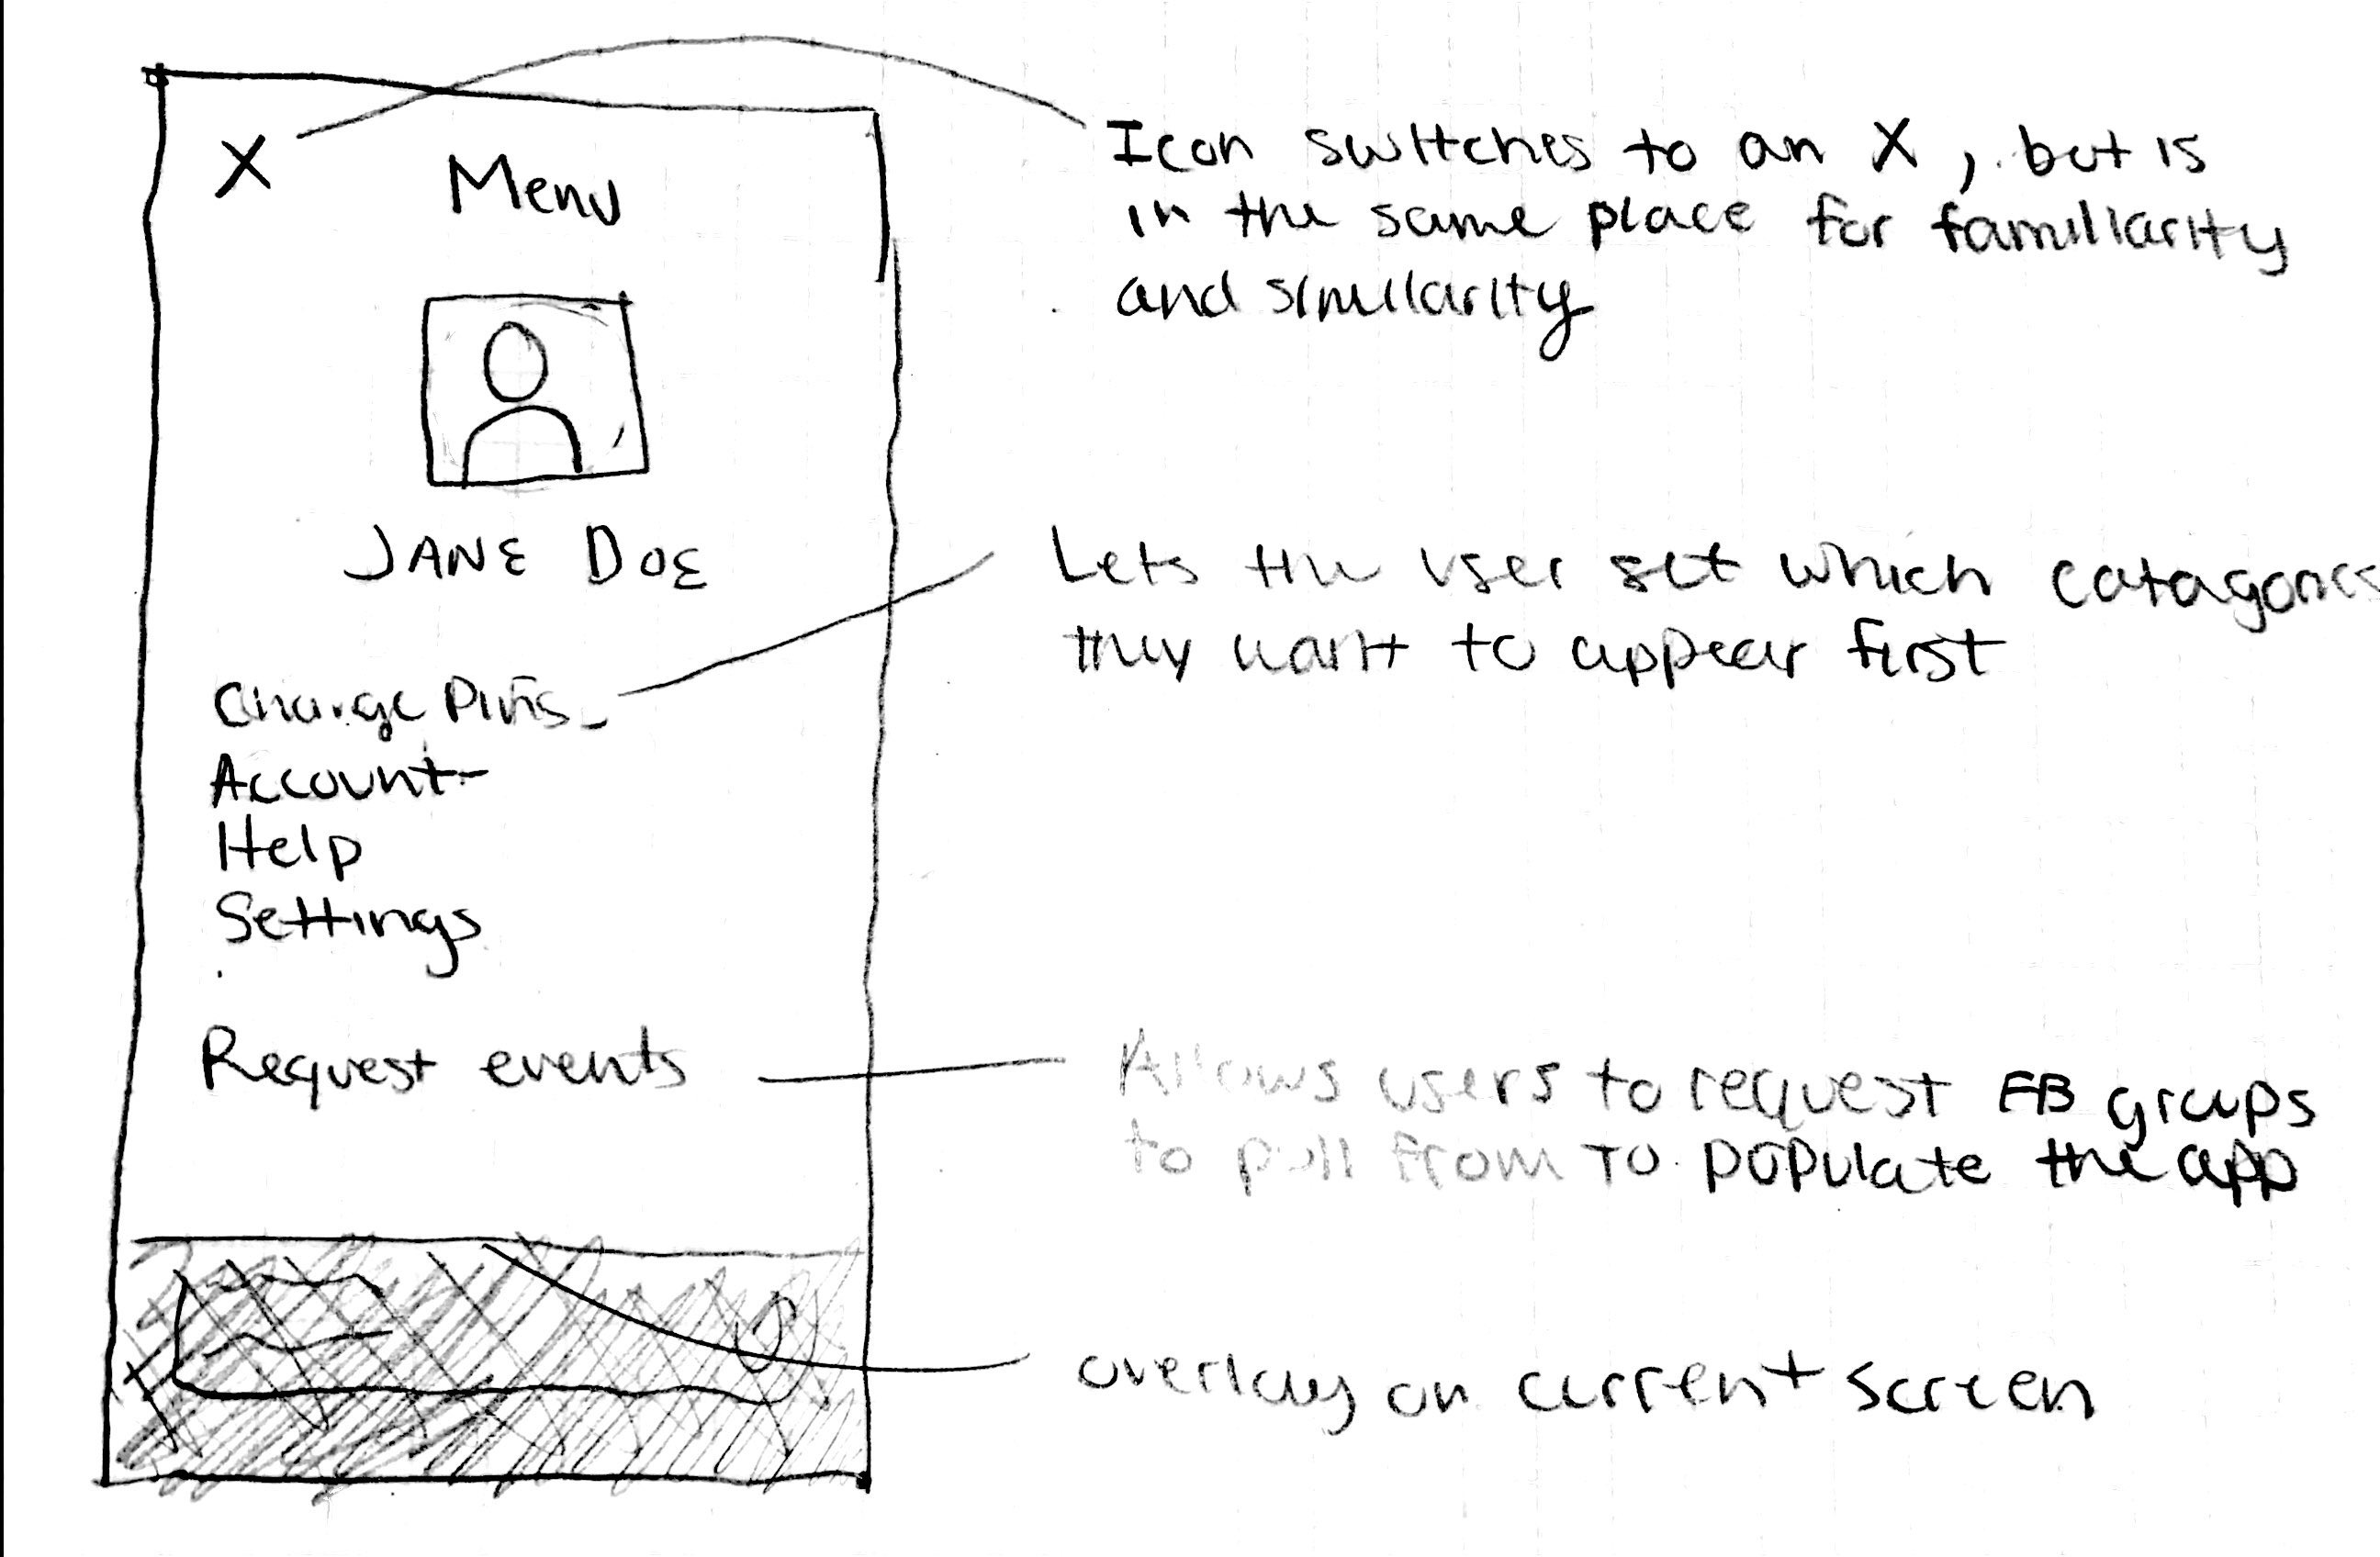 X
Menu
JANE DOE
Change Pins
Account
Help
Settings
Request events
Icon switches to an X, but is
in the same place for familiarity
and similarity
Lets the user set which catagories
they want to appear first
Allows users to request FB groups
to pull from to populate the app
overlay on current screen